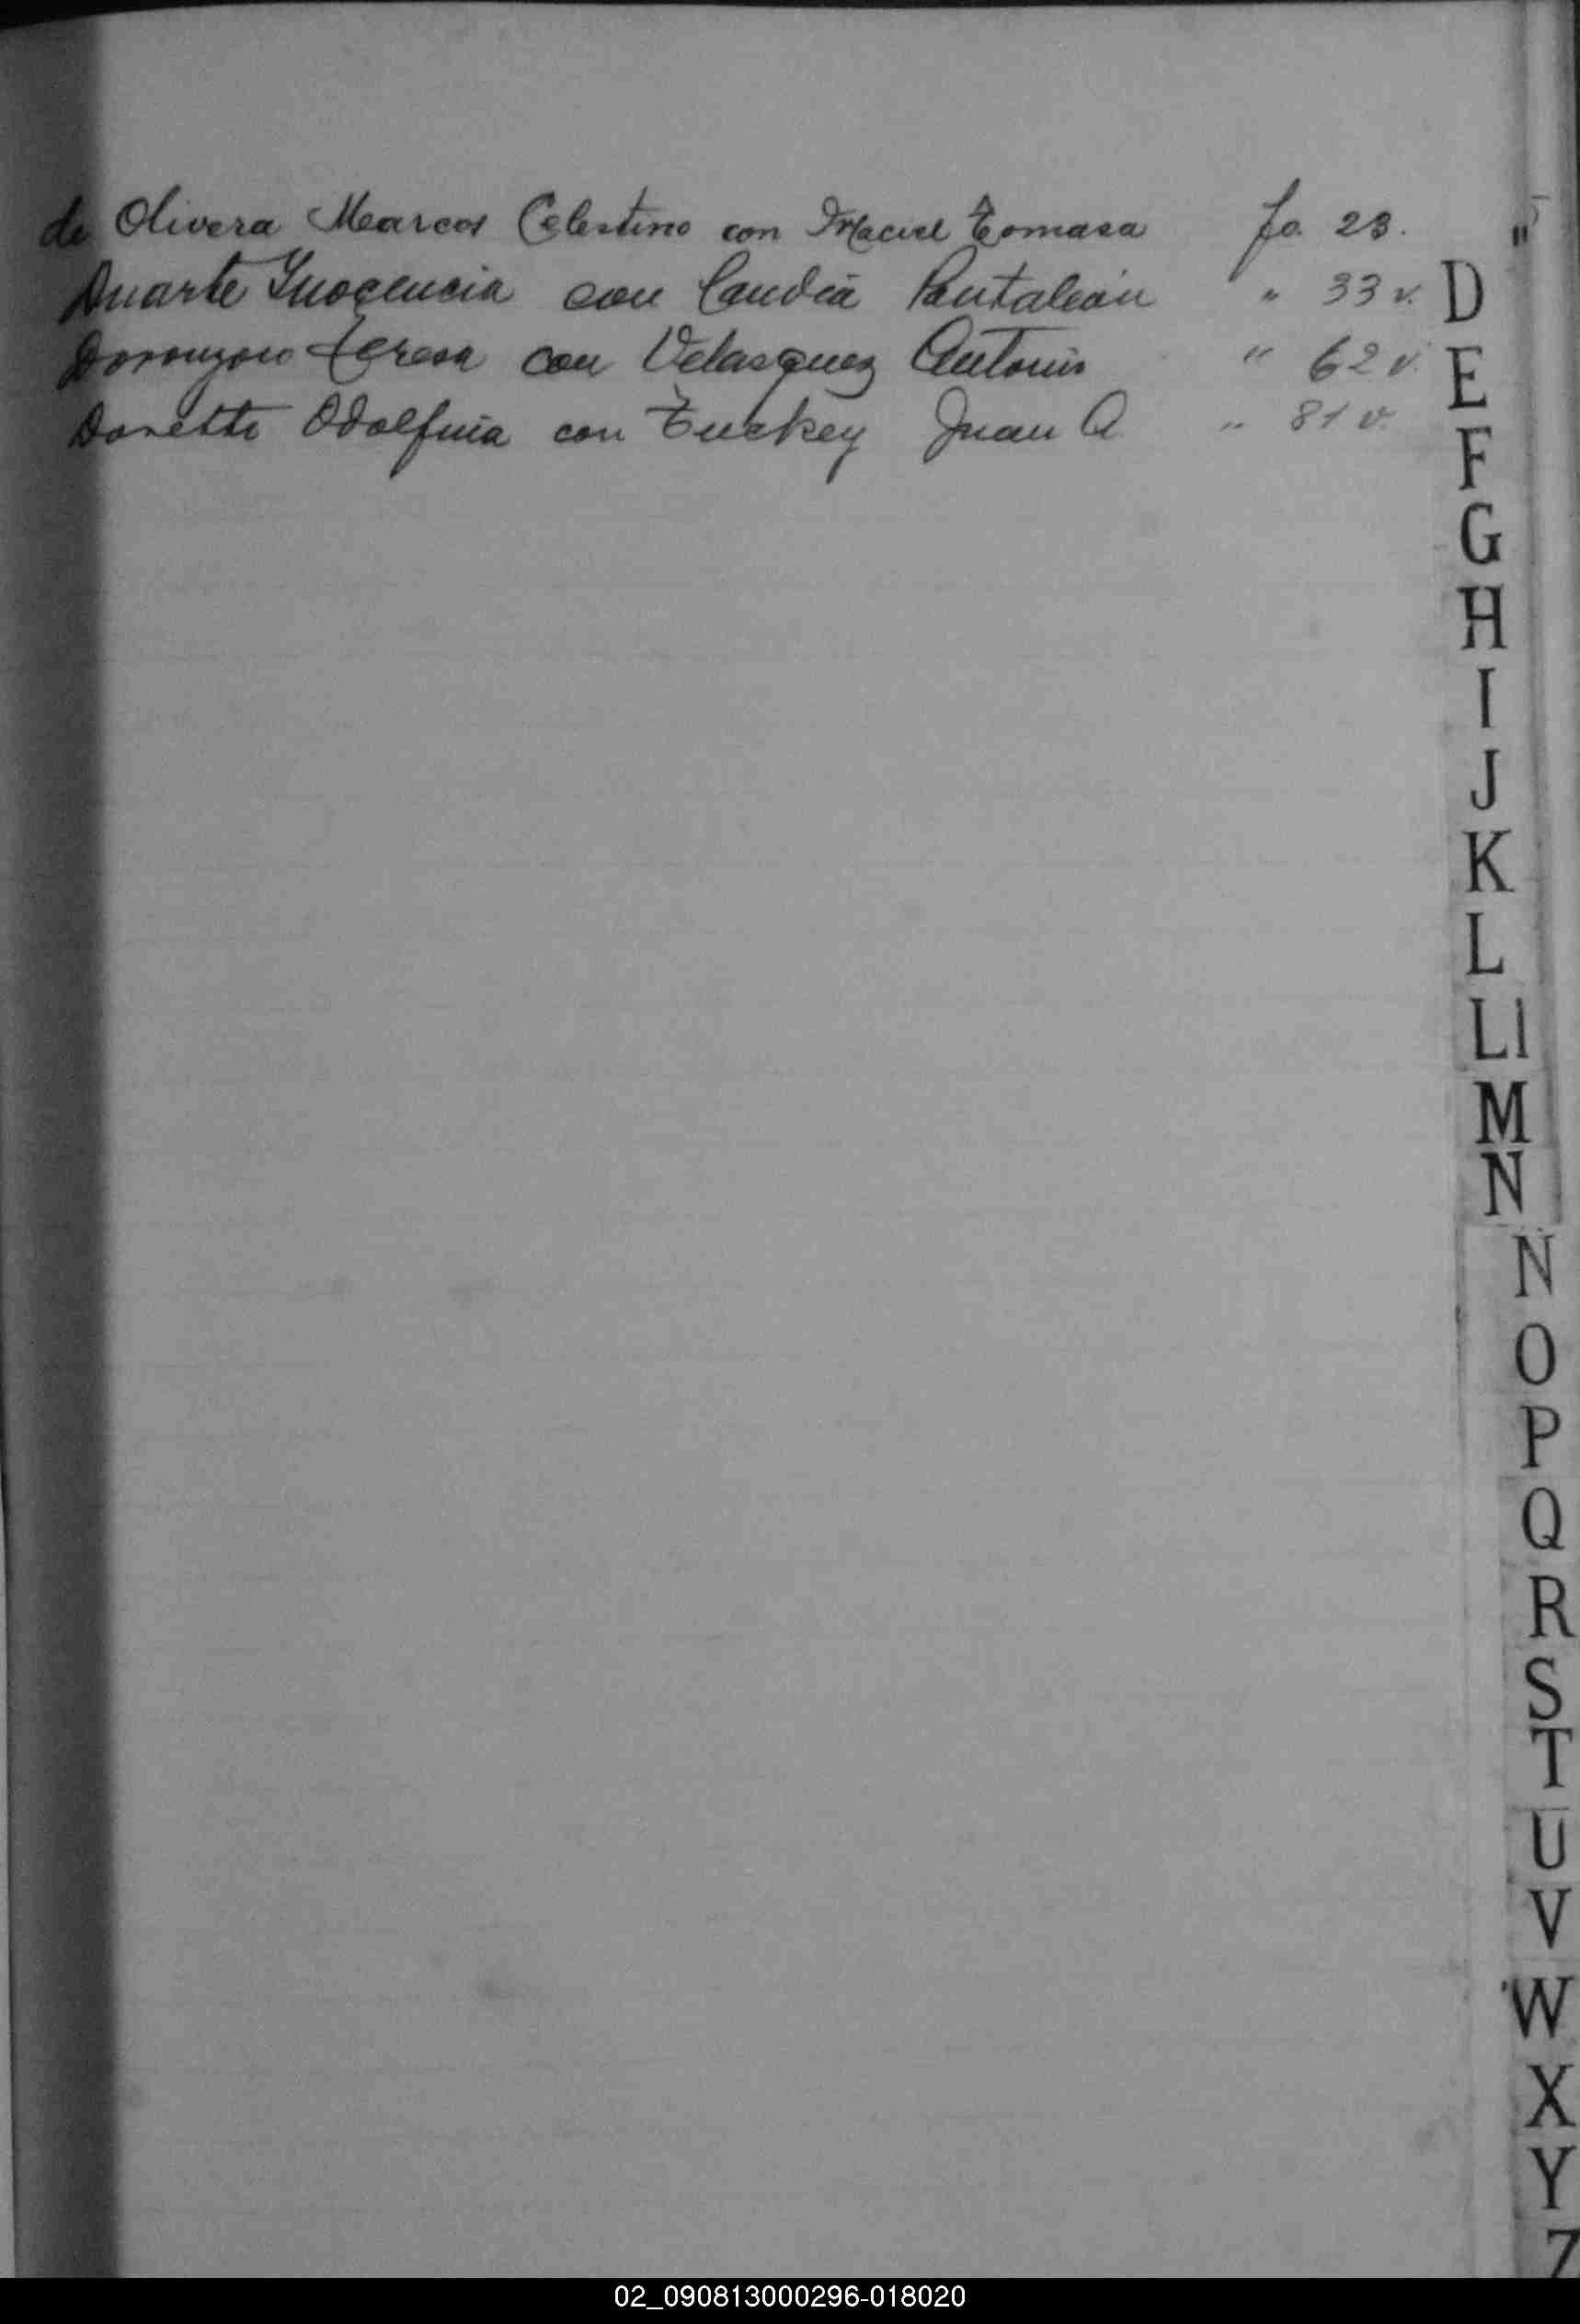 de Olivera Marcos Celestino con Maciel Tomasa fo. 23.
Duarte Inocencia con Candia Pantaleón " 33 v.
Teresa con Velasquez Antonio " 62 v.
Odolfina con Tuckey Juan A. " 81 v.
D
E
F
G
H
I
J
K
L
Ll
M
N
Ñ
O
P
Q
R
S
T
U
V
W
X
Y
Z
02_090813000296-018020